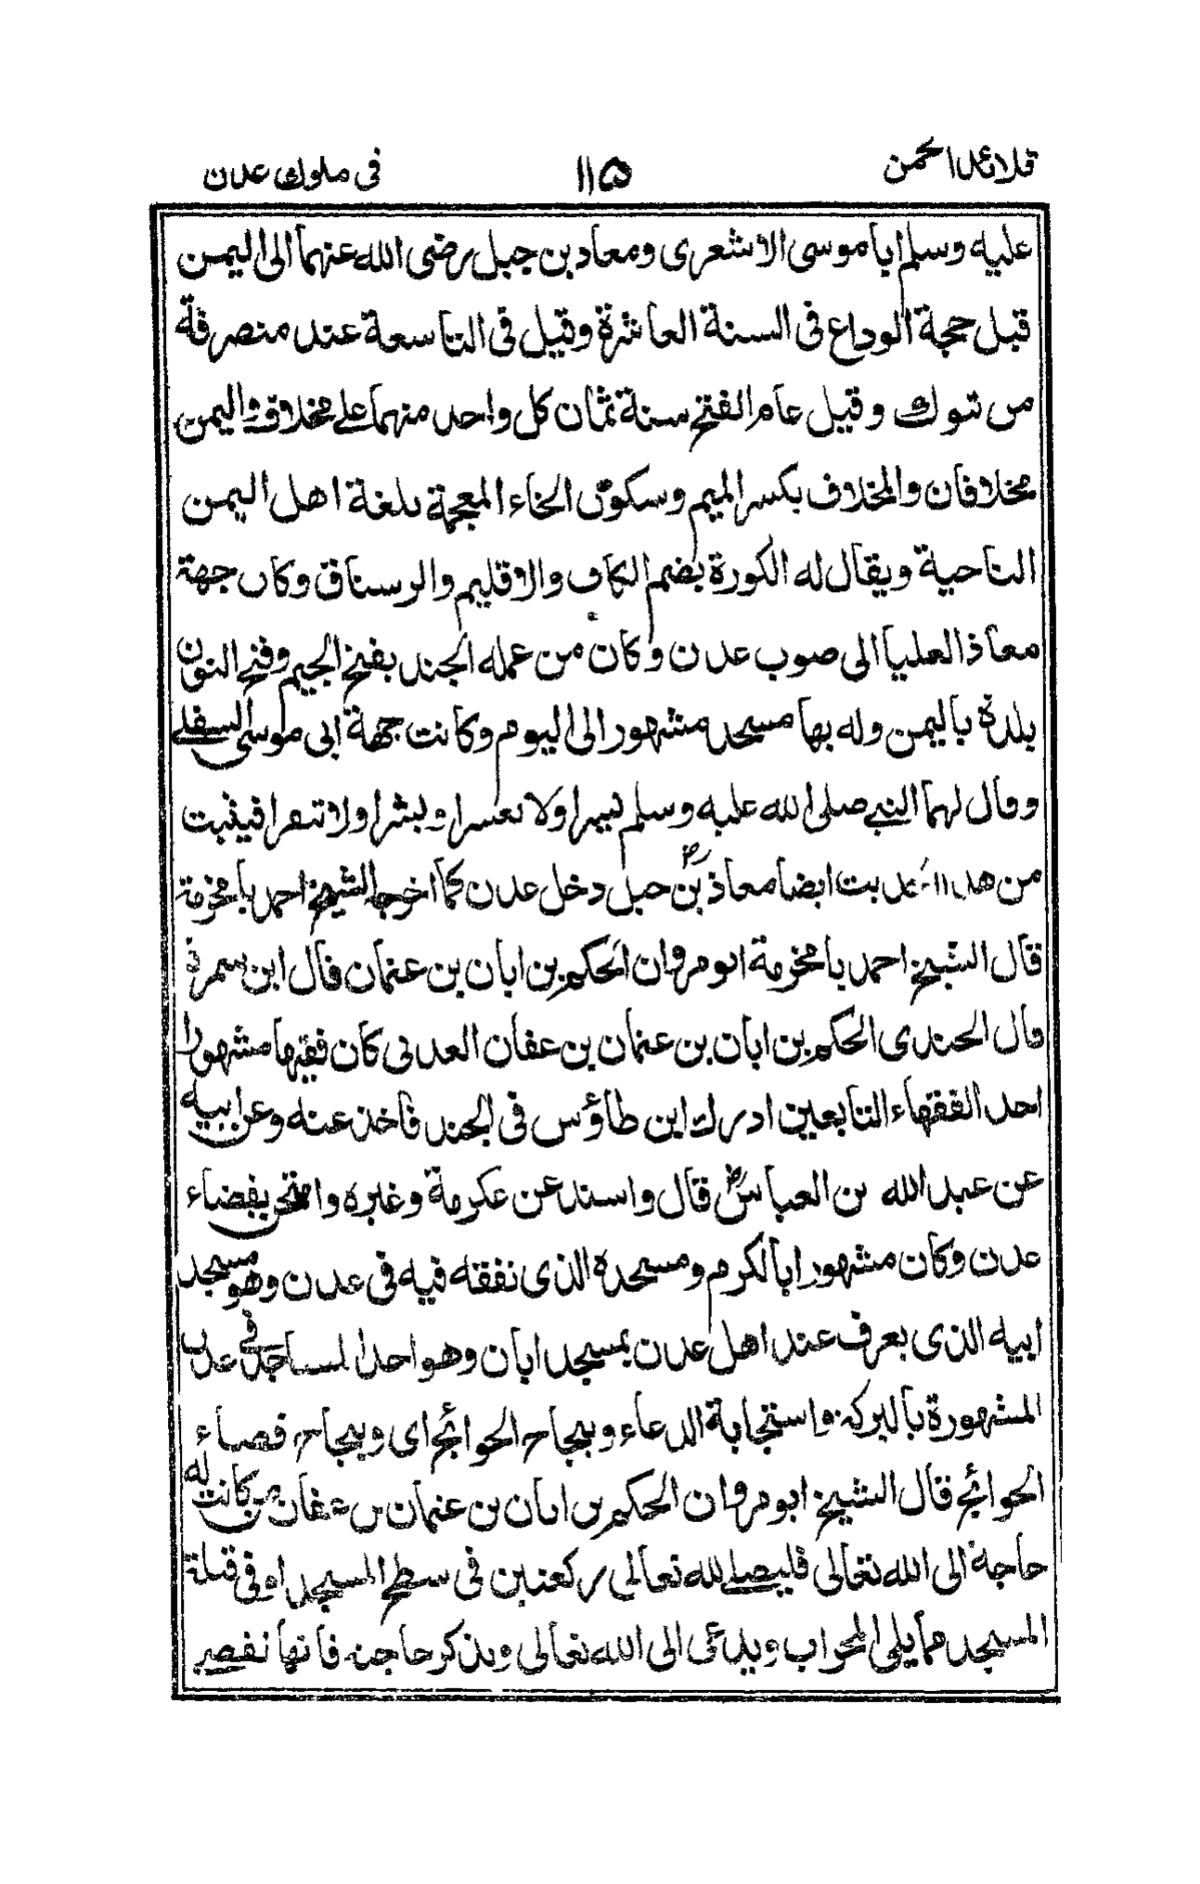 قلائد الجمن ١١۵ فى ملوك عدن
عليه وسلم ابا موسى الاشعرى ومعاذ بن جبل رضى الله عنهما الى اليمن
قبل حجة الوداع فى السنة العاشرة وقيل فى التاسعة عند منصرفة
من تبوك وقيل عام الفتح سنة ثمان كل واحد منهما على مخلاف واليمن
مخلافان والمخلاف بكسر الميم وسكون الخاء المعجمة بلغة اهل اليمن
الناحية ويقال له الكورة بضم الكاف والاقليم والرستاق وكان جهة
معاذ العليا الى صوب عدن وكان من عمله الجند بفتح الجيم وفتح النون
بلدة باليمن وله بها مسجد مشهور الى اليوم وكانت جهة ابى موسى السفلى
وقال لهما النبى صلى الله عليه وسلم يسرا ولا تعسرا وبشرا ولا تنفرا فيثبت
من هذا الحديث ايضا معاذ بن جبل دخل عدن كما اخرجه الشيخ احمد بامخرمة
قال الشيخ احمد بامخرمة ابو مروان الحكم بن ابان بن عثمان قال ابن سمرة
قال الجندى الحكم بن ابان بن عثمان بن عفان العدنى كان فقيها مشهورا
احد الفقهاء التابعين ادرك ابن طاؤس فى الجند فاخذ عنه وعن ابيه
عن عبد الله بن العباس رض قال واسند عن عكرمة وغيره وامتحن بقضاء
عدن وكان مشهورا بالكرم ومسجده الذى تفقه فيه فى عدن وهو مسجد
ابيه الذى يعرف عند اهل عدن بمسجد ابان وهو احد المساجد فى عدن
المشهورة بالبركة واستجابة الدعاء وبنجاح الحوائج اى وبنجاح قضاء
الحوائج قال الشيخ ابو مروان الحكم بن ابان بن عثمان بن عفان من كانت له
حاجة الى الله تعالى فليصلى لله تعالى ركعتين فى سطح المسجد او فى قبلة
المسجد مما يلى المحراب ويدعى الى الله تعالى ويذكر حاجته فانها تقضى